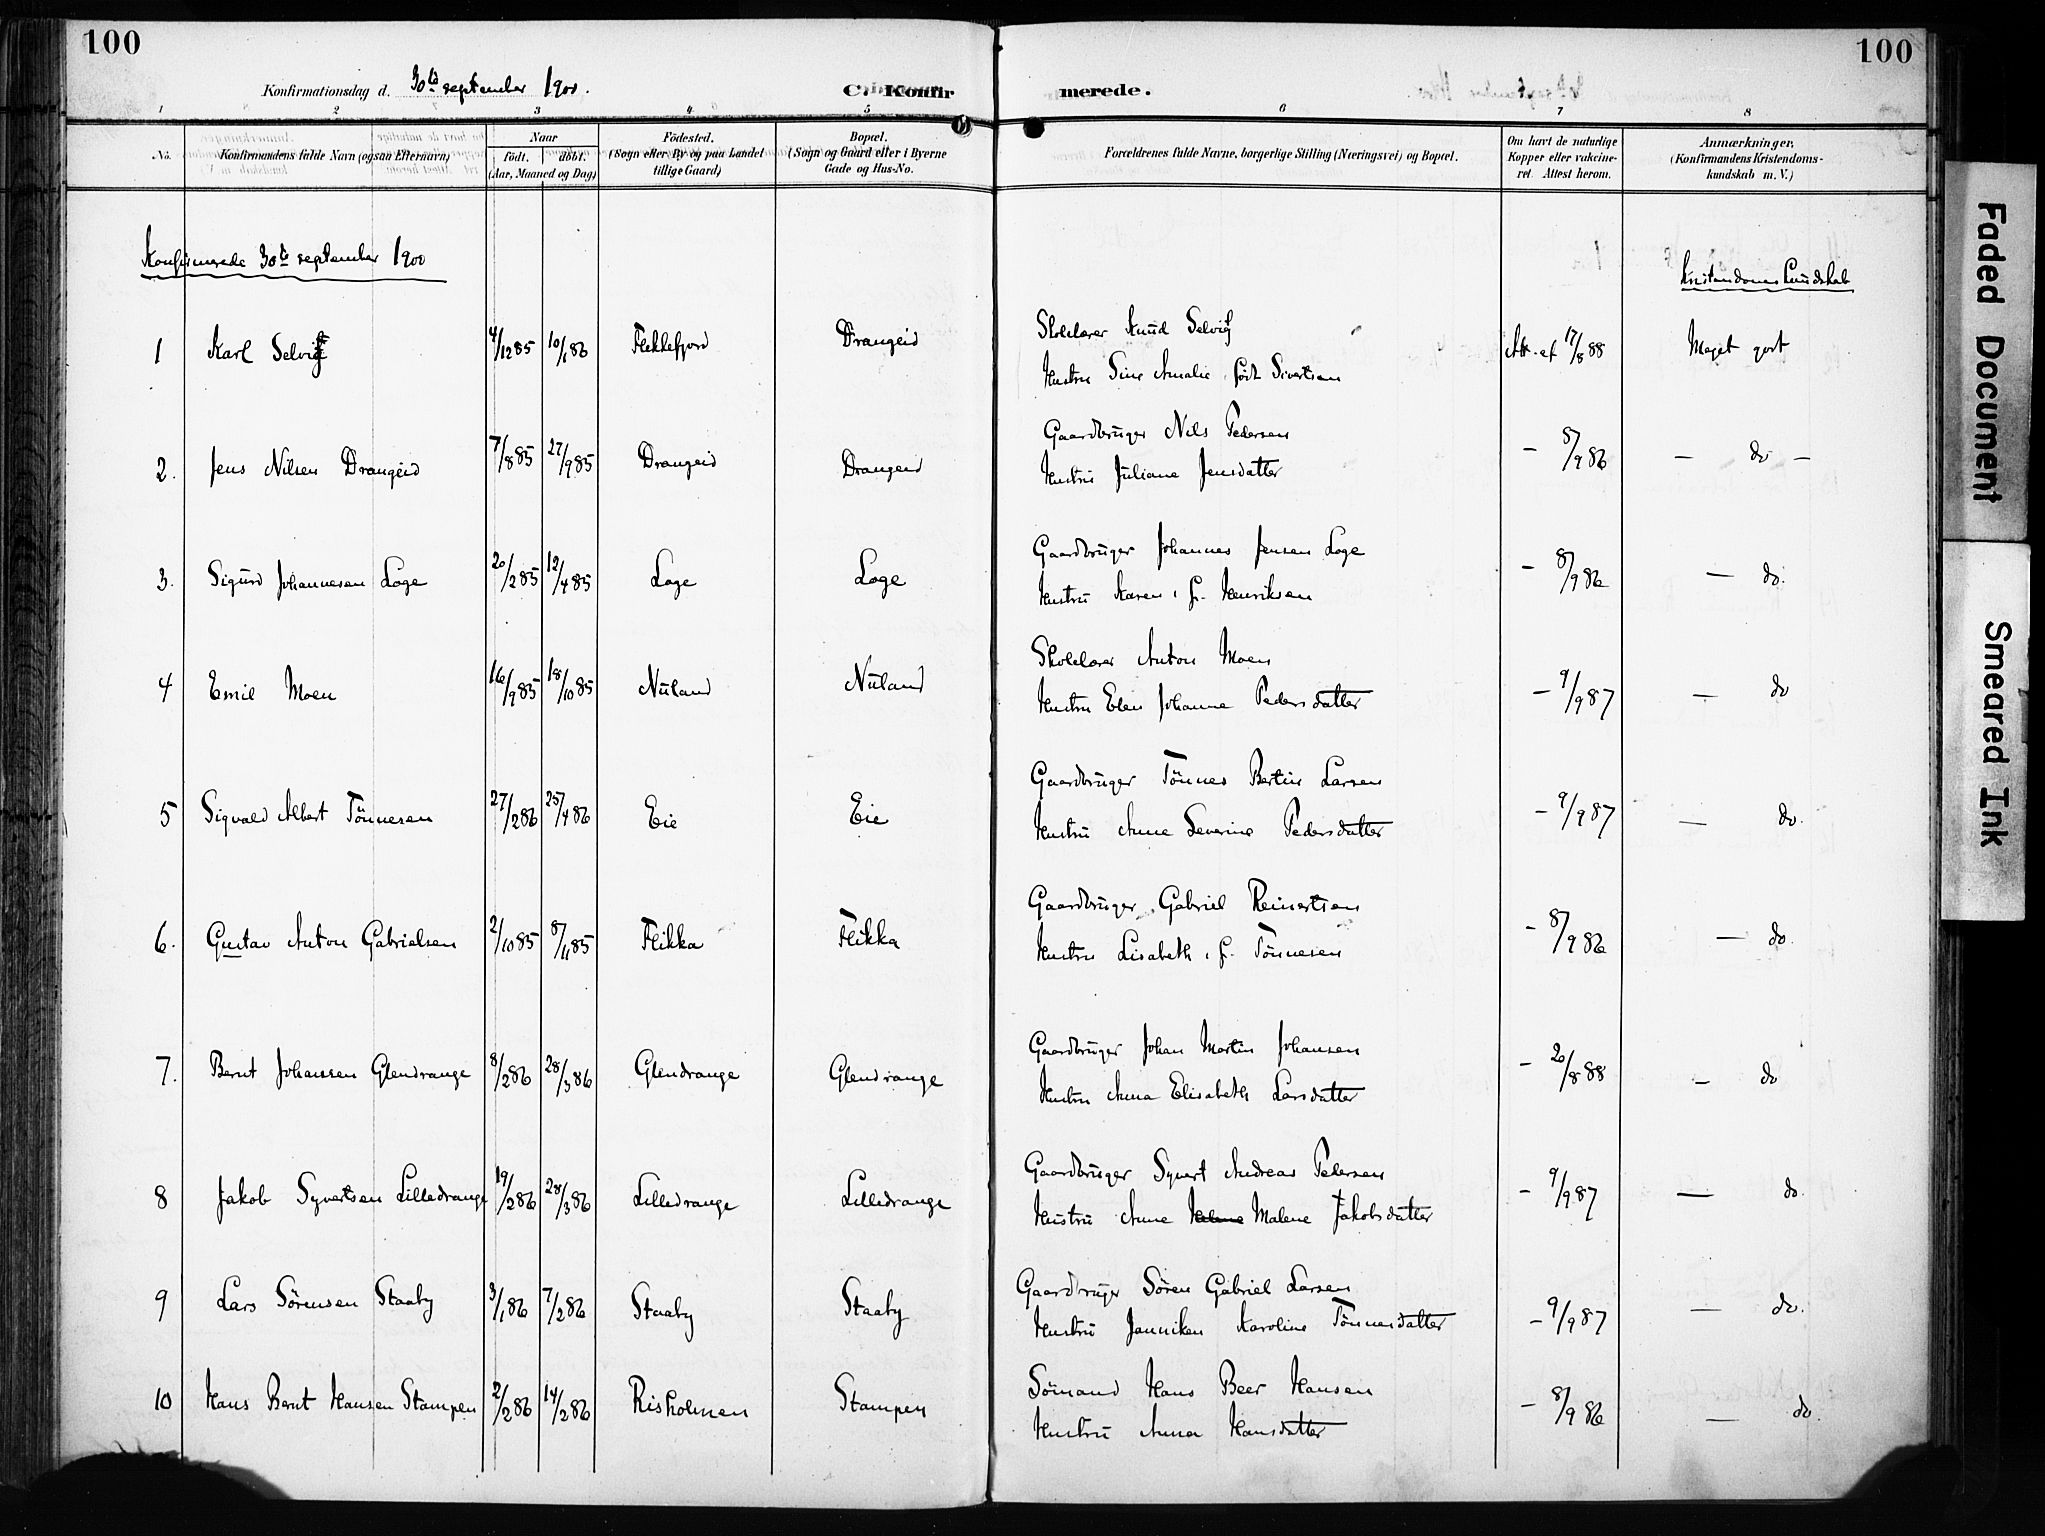 100
100
Konfirmationsdag d. 30te september 1900.
C. Konfirmerede.
1 2 3 4 5 6 7 8
No. Konfirmandens fulde Navn (ogsaa Efternavn) Naar født. døbt. (Aar, Maaned og Dag) Fødested. (Sogn eller By og paa Landet tillige Gaard) Bopæl. (Sogn og Gaard eller i Byerne Gade og Hus-No. Forældrenes fulde Navne, borgerlige Stilling (Næringsvei) og Bopæl. Om havt de naturlige Kopper eller vakcineret. Attest herom. Anmærkninger. (Konfirmandens Kristendomskundskab m. V.)
Konfirmerede 30te september 1900
Kristendomskundskab
1 Karl Selvig 4/12 85 10/1 86 Flekkefjord Drangeid Skolelærer Knud Selvig Att. af 17/8 88 Meget godt
Hustru Sine Amalie, født Sivertsen
2. Jens Nilsen Drangeid 7/8 85 27/9 85 Drangeid Drangeid Gaardbruger Nils Pedersen - 8/9 86 — do —
Hustru Juliane Jensdatter
3. Sigurd Johannesen Loge 20/2 85 12/4 85 Loge Loge Gaardbruger Johannes Jensen Loge - 8/9 86 — do.
Hustru Karen, f. Henriksen
4 Emil Moen 16/9 85 18/10 85 Nuland Nuland Skolelærer Anton Moen - 9/9 87 — do
Hustru Elen Johanne Pedersdatter
5 Sigvald Albert Tönnesen 27/2 86 25/4 86 Eie Eie Gaardbruger Tönnes Bertin Larsen - 9/9 87 — do.
Hustru Anne Severine Pedersdatter
6. Gustav Anton Gabrielsen 2/10 85 8/11 85 Flikka Flikka Gaardbruger Gabriel Reinertsen - 8/9 86 — do.
Hustru Lisabeth, f. Tönnesen
7. Bernt Johansen Glendrange 8/2 86 28/3 86 Glendrange Glendrange Gaardbruger Johan Martin Johansen - 20/8 88 — do
Hustru Anna Elisabeth Larsdatter
8 Jakob Syvertsen Lilledrange 19/2 86 28/3 86 Lilledrange Lilledrange Gaardbruger Syvert Andreas Pedersen - 9/9 87 — do.
Hustru Anne Malene Jakobsdatter
9 Lars Sörensen Staaby 3/1 86 7/2 86 Staaby Staaby Gaardbruger Sören Gabriel Larsen - 9/9 87 — do.
Hustru Janniken Karoline Tönnesdatter
10 Hans Bernt Hansen Stampen 2/2 86 14/2 86 Risholmen Stampen Sömand Hans Beer Hansen - 8/9 86 — do.
Hustru Anna Hansdatter
Faded Document
Smeared Ink